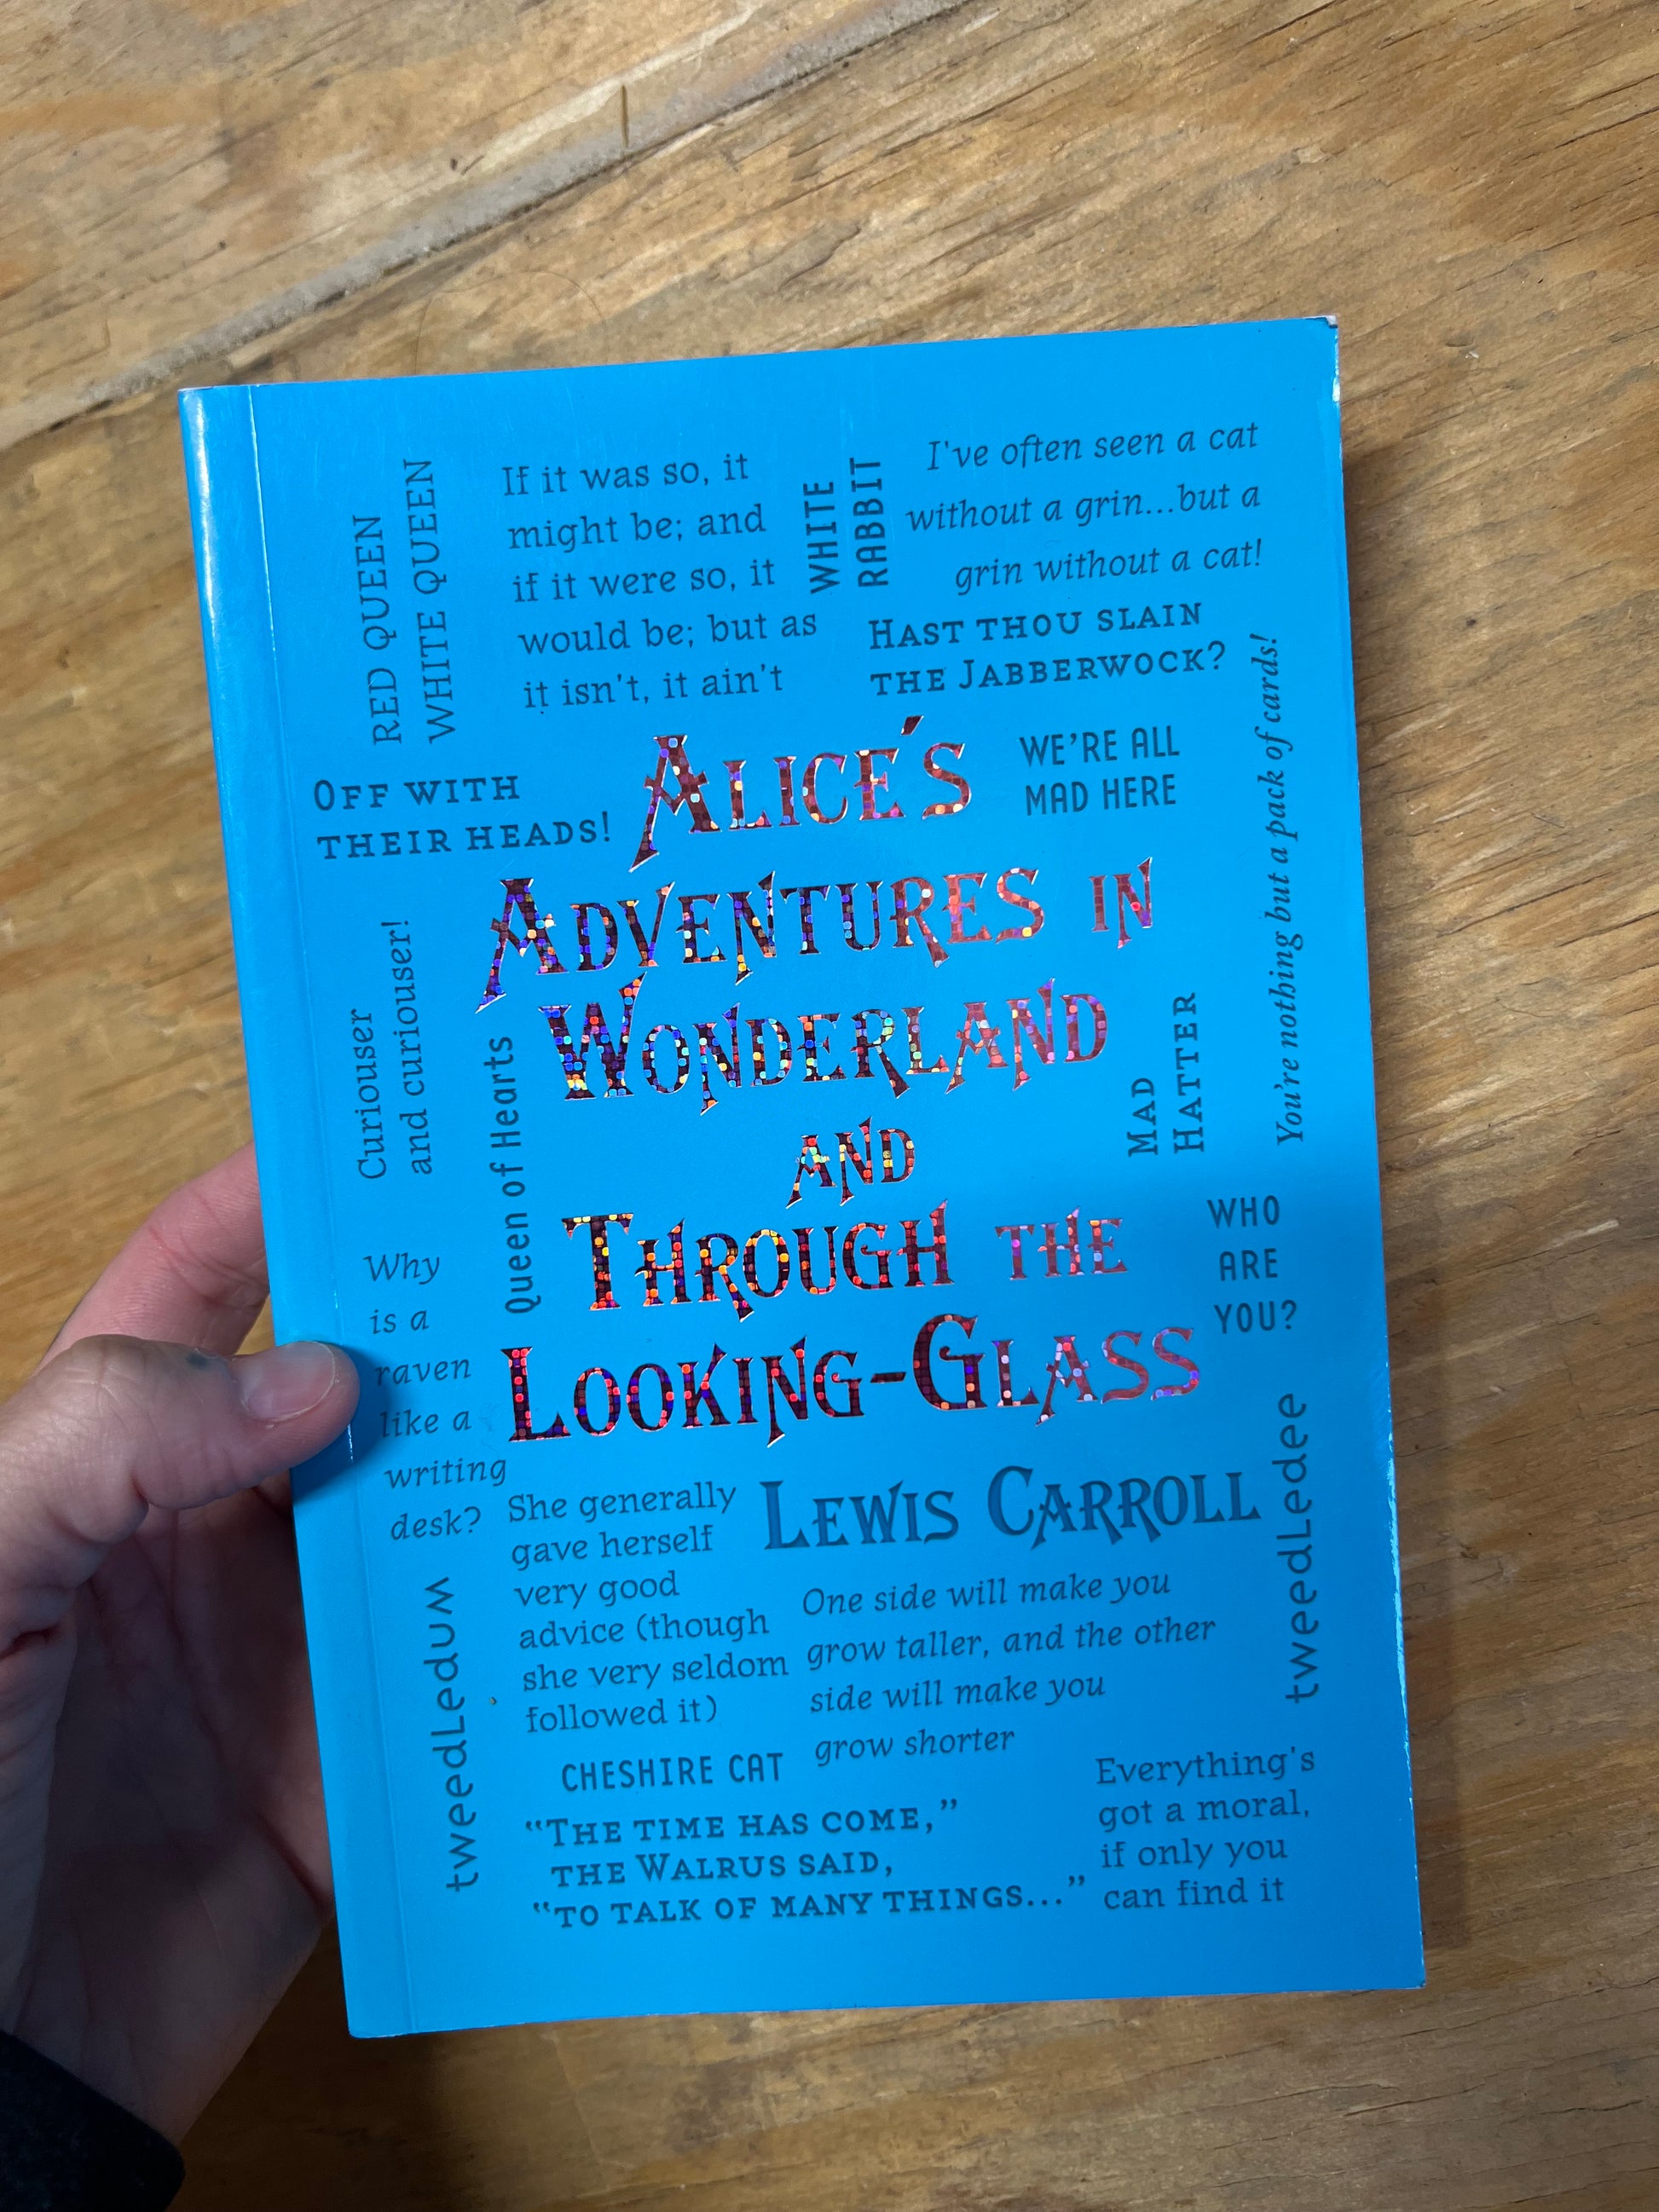 RED QUEEN
WHITE QUEEN
If it was so, it
might be; and
if it were so, it
would be; but as
it isn't, it ain't
WHITE
RABBIT
I've often seen a cat
without a grin...but a
grin without a cat!
HAST THOU SLAIN
THE JABBERWOCK?
OFF WITH
THEIR HEADS!
WE'RE ALL
MAD HERE
You're nothing but a pack of cards!
ALICE'S
ADVENTURES IN
WONDERLAND
AND
THROUGH THE
LOOKING-GLASS
Curiouser
and curiouser!
Queen of Hearts
MAD
HATTER
Why
is a
raven
like a
writing
desk?
WHO
ARE
YOU?
LEWIS CARROLL
tweedLedum
She generally
gave herself
very good
advice (though
she very seldom
followed it)
One side will make you
grow taller, and the other
side will make you
grow shorter
tweedLedee
CHESHIRE CAT
“THE TIME HAS COME,”
THE WALRUS SAID,
“TO TALK OF MANY THINGS...”
Everything's
got a moral,
if only you
can find it